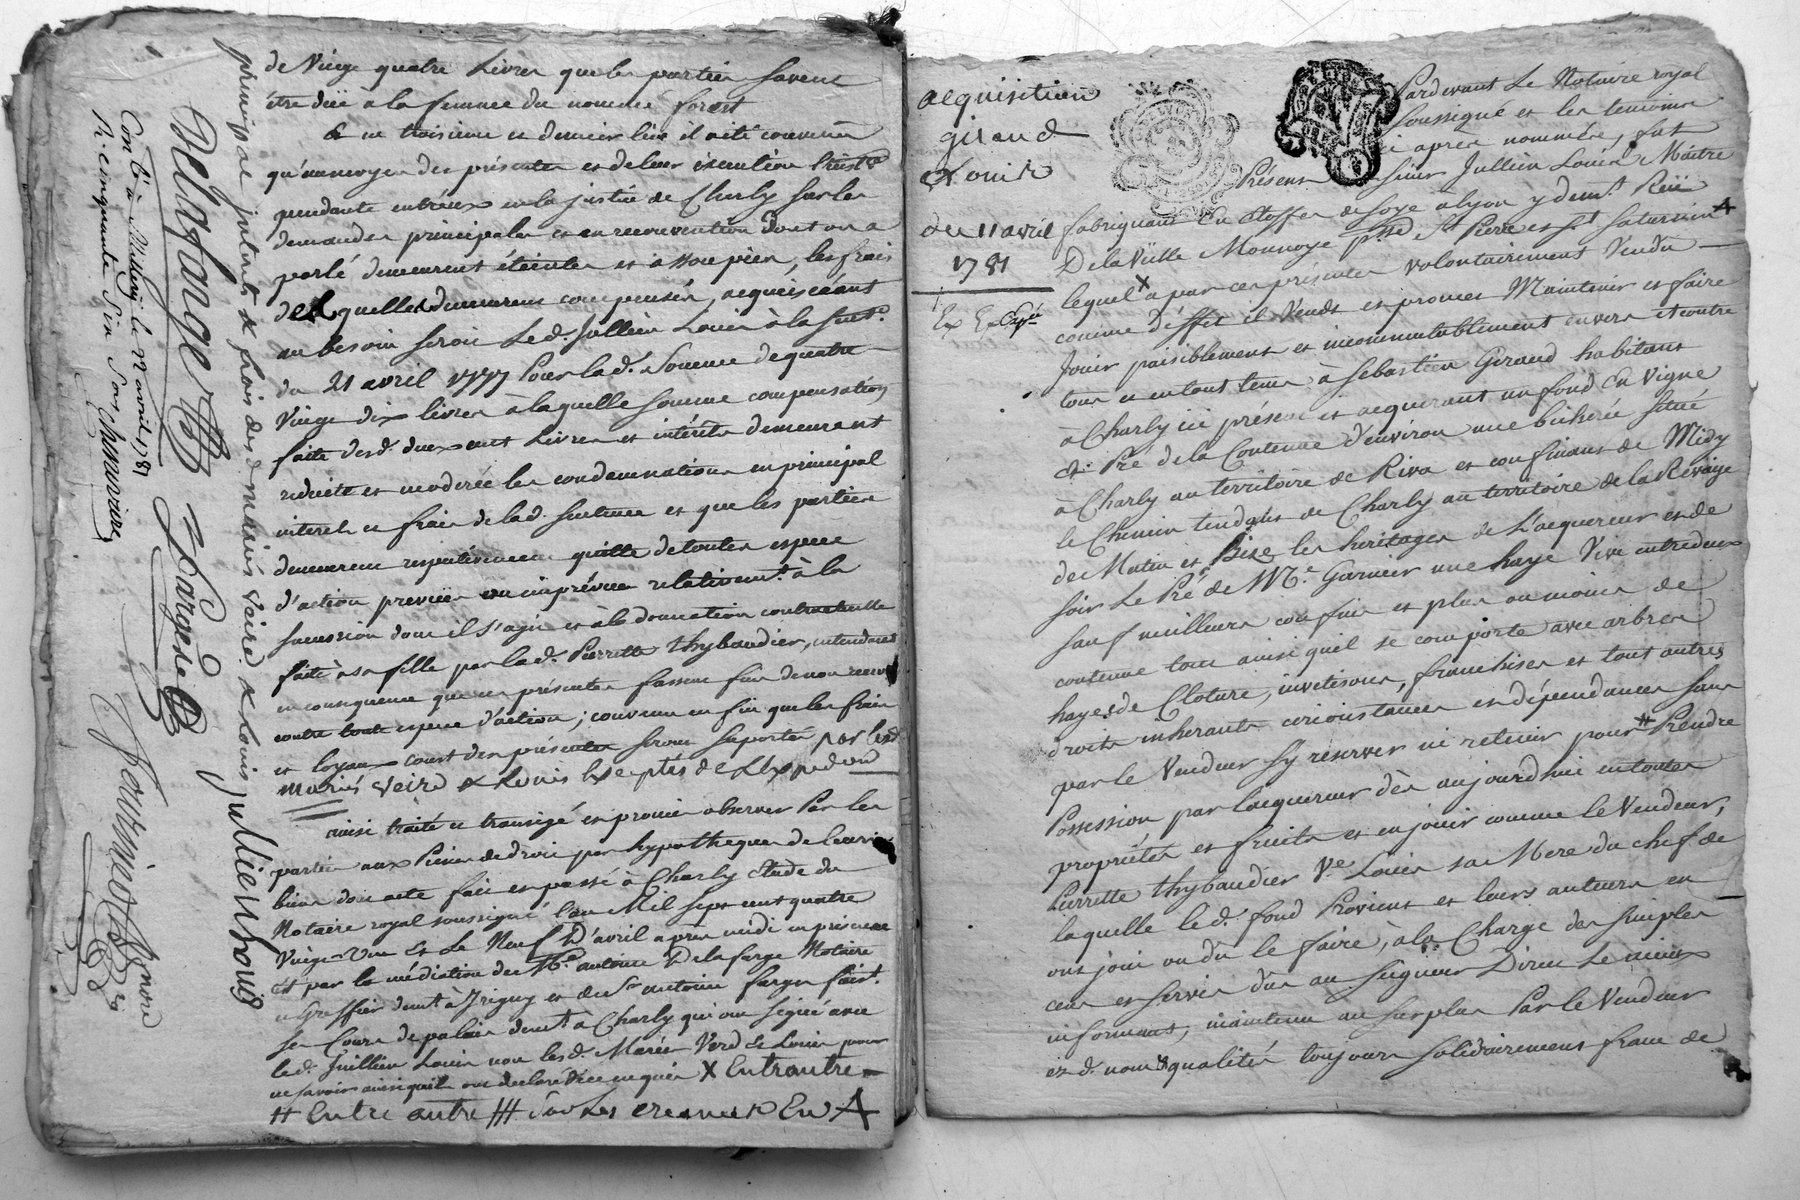 de Vingt quatre Livres que les parties savent
être düe à la femme du nommé forest
& en troisieme et dernier lieu il a été convenu
qu'aumoyen des présentes et de leur éxécution l'inst.ce
pendante entr'eux en la justice de Charly sur les
demandes principales et en reconvention dont on a
parlé demeurent éteintes et assoupies, les frais
desquelles demeurent compensés, acquiesçant
au besoin seroit Led. Jullien Louis à la sent.ce
du 21 avril 1777 Pour lad. Somme de quatre
Vingt dix livres à laquelle somme compensation
faite desd. deux cent Livres et intérêts demeurent
réduite et moderée les condemnations en principal
interet et frais de lad. sentence et que les parties
demeurent respectivement quitte de toutes espece
d'action prevues ou imprévues relativem.t à la
succession dont il s'agit et à la donnation contractuelle
faite à sa fille par lad. Pierrette thybaudier, entendant
en consequence que ces présentes fassent fin de non recev
contre toute espece d'action; convenu en fin que les frais
et loyaux cout des présentes seront suportés par lesd
mariés Veird & Louis
ainsi traité et transigé et promis observer Par les
parties aux Peines de droit par hypotheques de leurs
biens dont acte fait et passé à Charly Etude du
Notaire royal soussigné l'an Mil sept cent quatre
Vingt-Un Et Le Neuf D'avril apres midi en presence
Et par la médiation de M.e antoine Delafarge Notaire
et Greffier dem.t à Irigny et de S.r antoine farge
ses Cours de palais dem.t à Charly qui ont signé avec
led. Juillien Louis non lesd. Mariés Verd Et Louis pour
ne savoir ainsi quils ont declaré de ce enquis X Entrautre
# Entre autre ### Sur Les En A
principal intérêt & frais desd mariés Vaire & Louis Jullien Louis
Delafarge Fargese
Con.lé à Millery le 12 avril 1781
R. cinquante Six Sous
acquisition
giraud
Louis
du 11 avril
1781
Ex Ex Expé
Pardevant Le Notaire royal
Soussigné et les temoins
ci apres nommés, fut
Présent Sieur Jullien Louis Maitre
fabriquant En étoffes de soye à lyon y dem.t Rüe
De la Vielle Monnoye p.sse St Pierre et St Saturnin A
lequel X a par ces présentes volontairement Vendu
comme d'éffet il Vends et promet Maintenir et faire
Jouir paisiblement et incommutablement envers et contre
tous et en tout tems à Sébastien Giraud habitant
à Charly ici présent et acquerant un fond En Vigne
et Pré de la Contenue d'environ une bicherée situé
à Charly au territoire de Riva et confinant de Midy
le Chemin tendant de Charly au territoire de la Revoÿe
de Matin et Bize les heritages de l'acquereur et de
soir Le Pré de M.e Garnier une haye Vive entredeux
sauf meilleurs confins et plus ou moins de
contenue tout ainsi quil se comporte avec arbres
hayes de Cloture, inveticons, franchises et tout autres
droits inherants circonstances et dépendances sans
par le Vendeur sy réserver ni retenir pour # Prendre
Possession par l'acquereur dès aujourd'hui en toutes
propriétés et fruits et en jouir comme le Vendeur,
Pierrette thybaudier V.e Louis sa Mere du chef de
laquelle led. fond Provient et leurs auteurs en
ont joui ou du le faire, à la Charge des simples
cens et servis dus au Seigneur Direct Le mieux
informant, maintenu au surplus Par le Vendeur
et d. nom & qualités toujours solidairement franc de